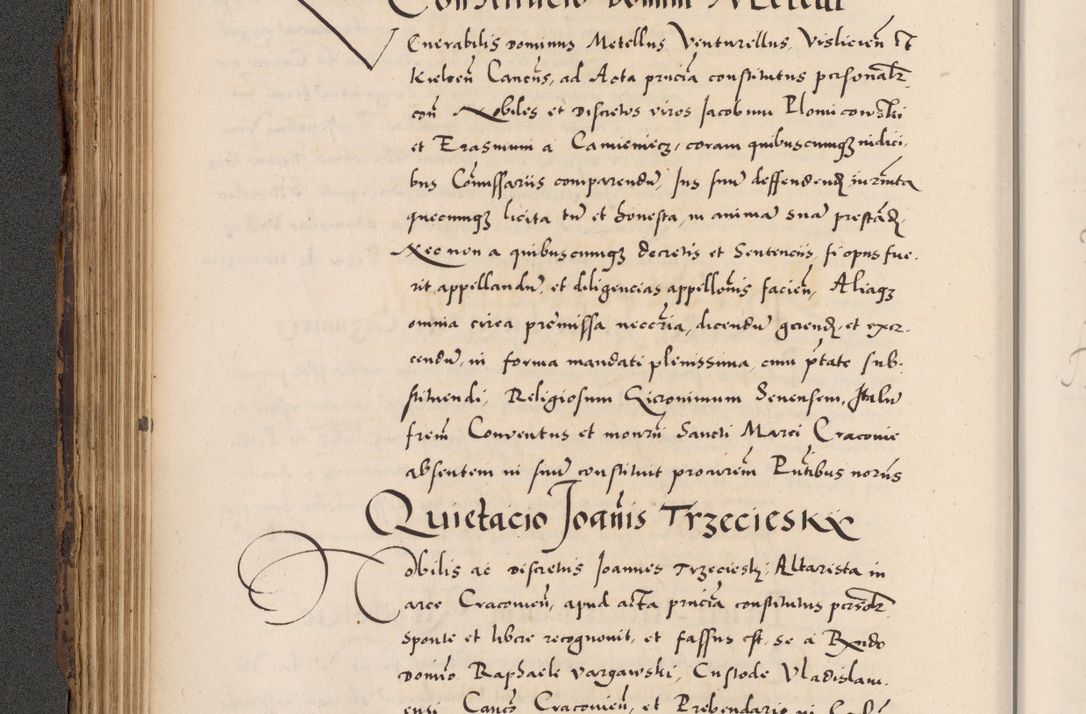 Constitucio Domini Metelli
Venerabilis Dominus Metellus Venturellus, Vislicień et
Kielceń Cancus, ad Acta pnciia constitutus personalr
coń Nobiles et Discretos viros Jacobum Plomicowski
et Erasmum a Camieniecz, coram quibuscumqz iudici,
bus Comissariis comparendū, Jus suū deffendend, iurmta
quecumqz licita tn et honesta, in animā suā prestād,
Nec non a quibuscumqz decretis et Sentenciis, si opus fue,
rit, appellandū, et diligencias appellonis facień, Aliaqz
omnia circa premissa necceria, dicendū gerend, et exer,
cendū, in forma mandati plenissima, cum ptate sub,
stituendi, Religiosum Hieronimum Senensem, Italū
frem Conventus et monrii Sancti Marci Cracovie
absentem in suū constituit procurem Pntibus noriis
Quietacio Joanis Trzecieskx
Nobilis ac Discretus Joannes Trzecieski Altarista in
arce Cracovień, apud acta pnciia constitutus persolr
sponte et libere recognovit, et fassus est, se a Rndo
Domino Raphaele Vargawski, Custode Vladislavi,
ensi Canco Cracovień, et Prebendario in